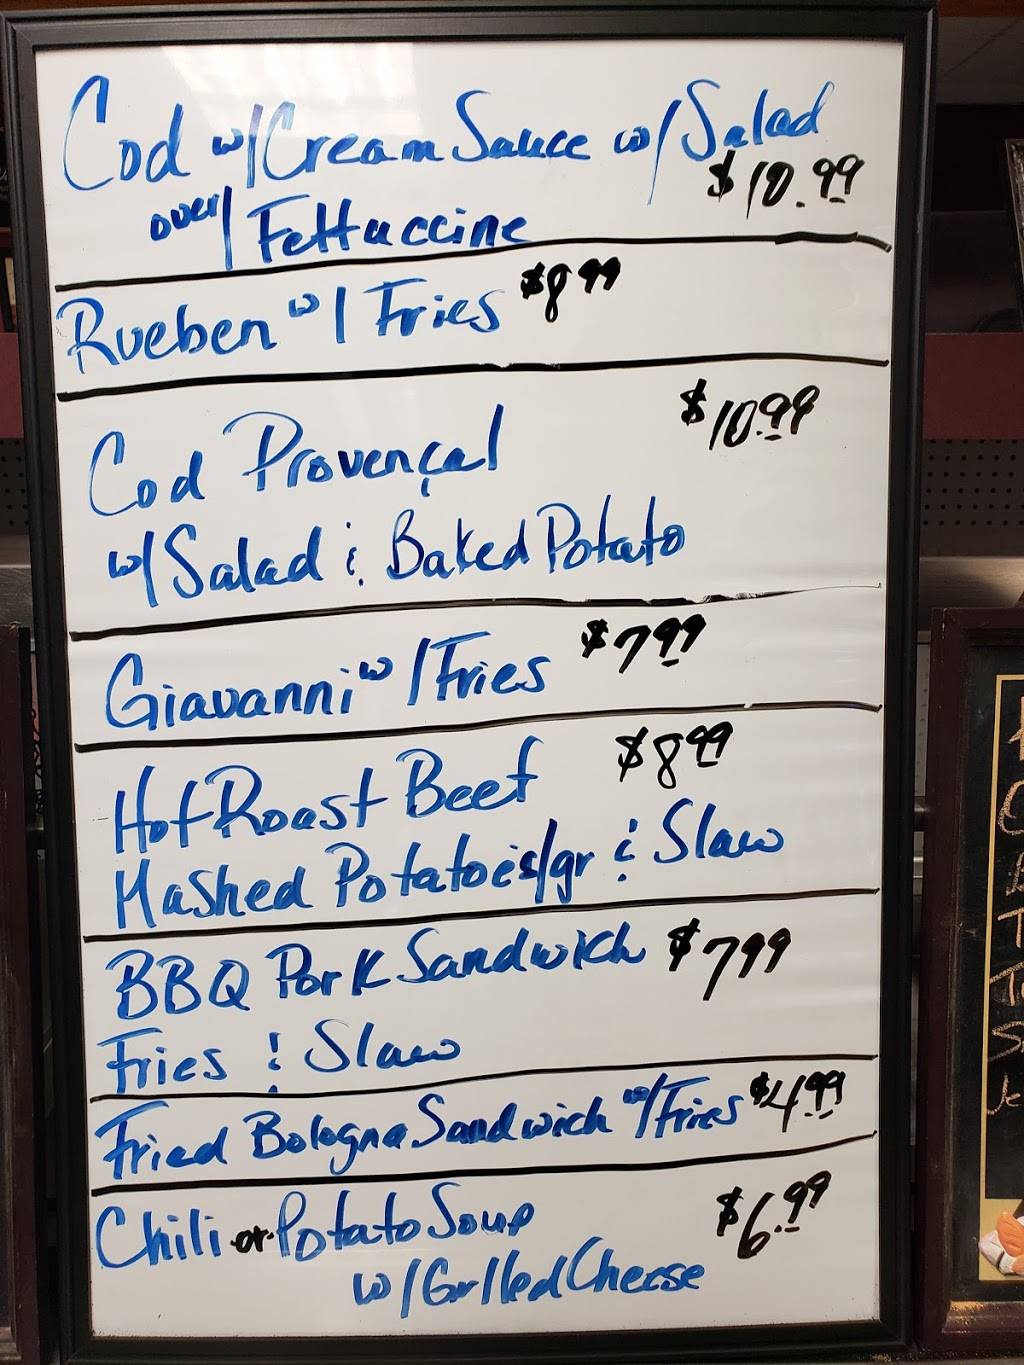 Cod w/Cream Sauce w/Salad
over/ Fettuccine $10.99
Rueben w/ Fries $8.99
Cod Provençal $10.99
w/Salad & Baked Potato
Giavanni w/Fries $7.99
Hot Roast Beef $8.99
Mashed Potatoes/gr & Slaw
BBQ Pork Sandwich $7.99
Fries & Slaw
Fried Bologna Sandwich w/Fries $4.99
Chili or Potato Soup $6.99
w/Grilled Cheese